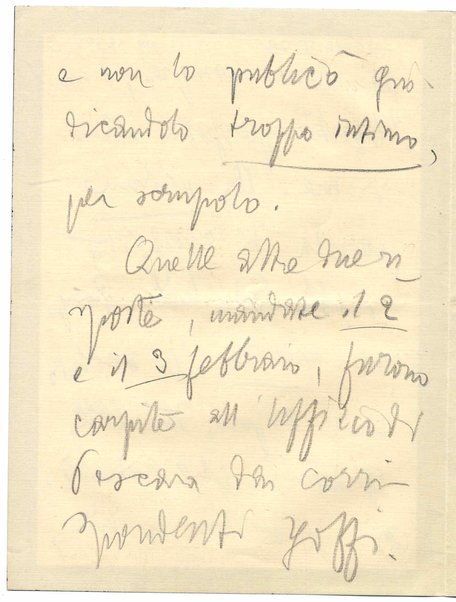 e non lo publicò giu
dicandolo troppo intimo,
per scrupolo.
Quelle altre due ri
sposte, mandate il 2
e il 3 febbraio, furono
carpite all'Ufficio di
Pescara dai corri
spondenti goffi.